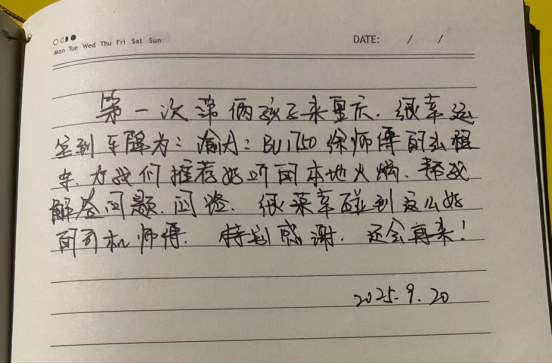 Mon Tue Wed Thu Fri Sat Sun
DATE: / /
第一次带俩孩子来重庆.很幸运
坐到车牌为:渝A:BU1750徐师傅的出租
车.为我们推荐好吃的本地火锅.帮我
解答问题.问路.很荣幸碰到这么好
的司机师傅.特别感谢.还会再来!
2025.9.20